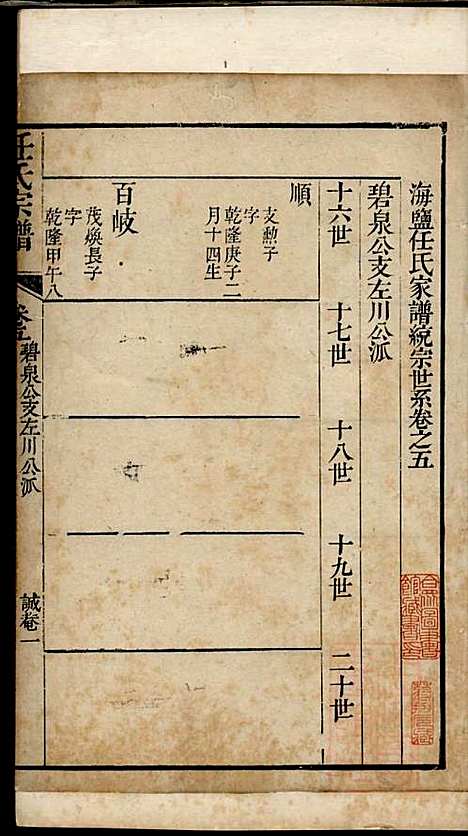 海鹽任氏家譜統宗世系卷之五
碧泉公支左川公派
十六世 十七世 十八世 十九世 二十世
順
支勲子
字
乾隆庚子二
月十四生
百岐
茂煥長子
字
乾隆甲午八
任氏宗譜 卷五 碧泉公支左川公派 誠菴一